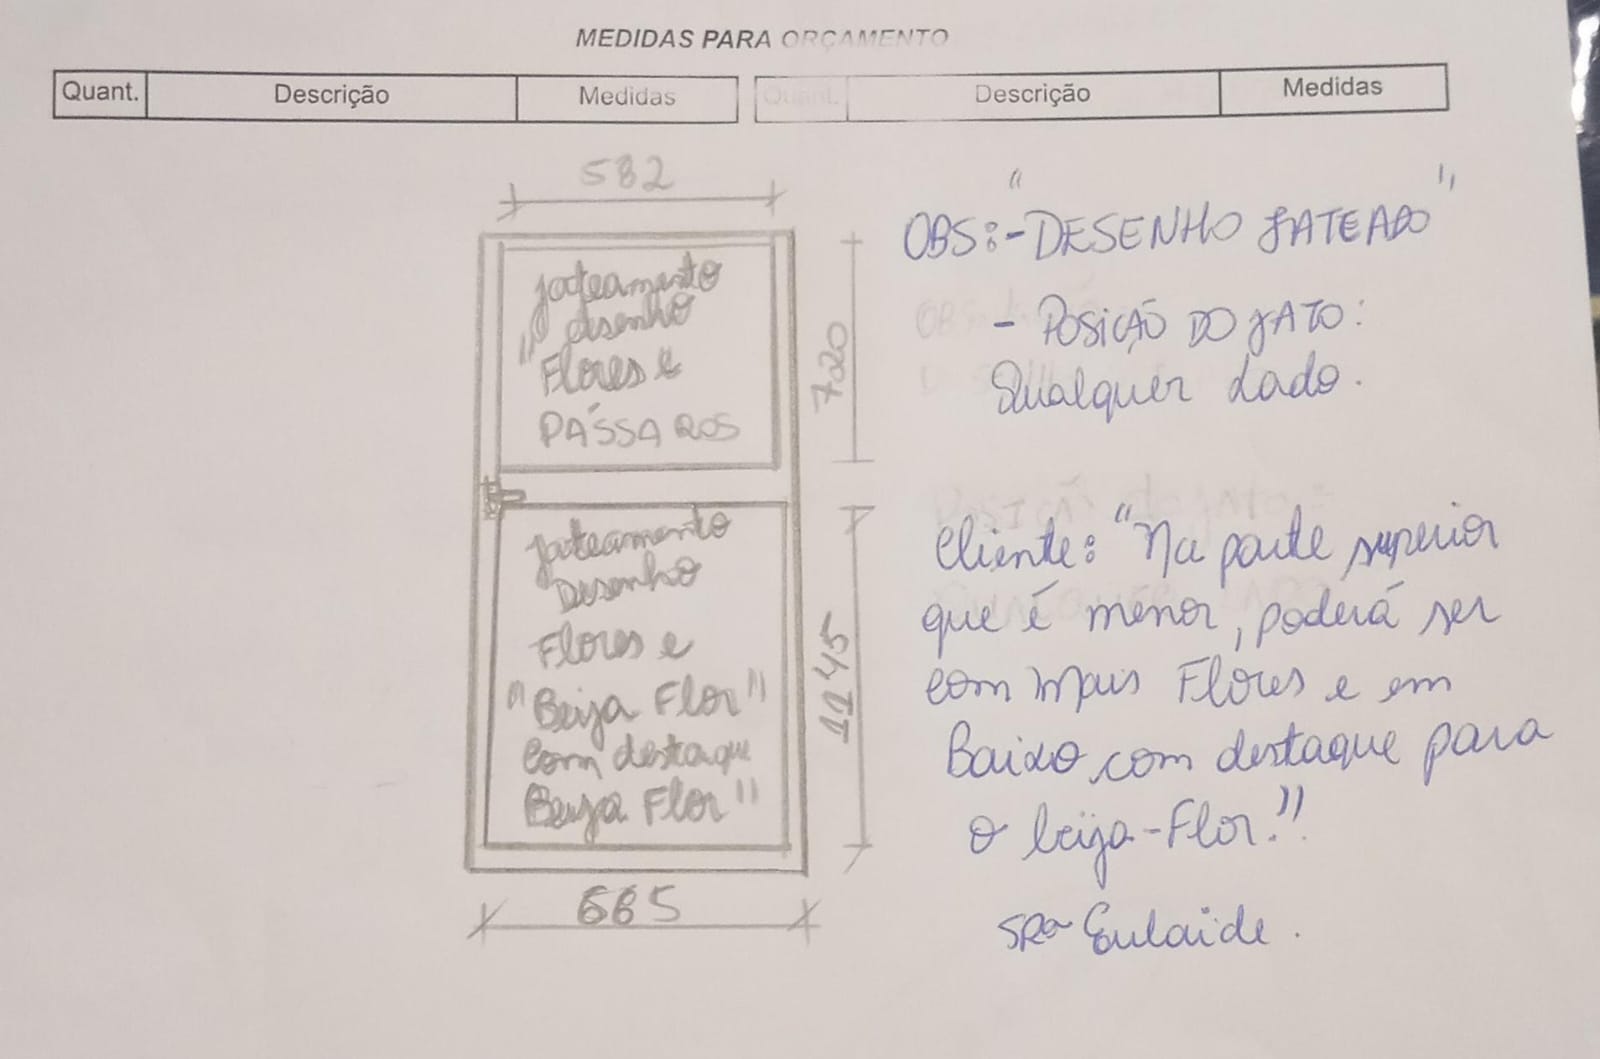 MEDIDAS PARA ORÇAMENTO
Quant. Descrição Medidas Quant. Descrição Medidas
582
jateamento
desenho
"Flores e
PÁSSAROS
720
jateamento
Desenho
Flores e
"Beija Flor"
com destaque
Beija Flor"
1145
665
"
OBS:- DESENHO JATEADO"
- POSIÇÃO DO JATO:
Qualquer Lado.
Cliente: "Na parte superior
que é menor, poderá ser
com mais Flores e em
Baixo com destaque para
o beija-Flor."
SRa Eulaide.